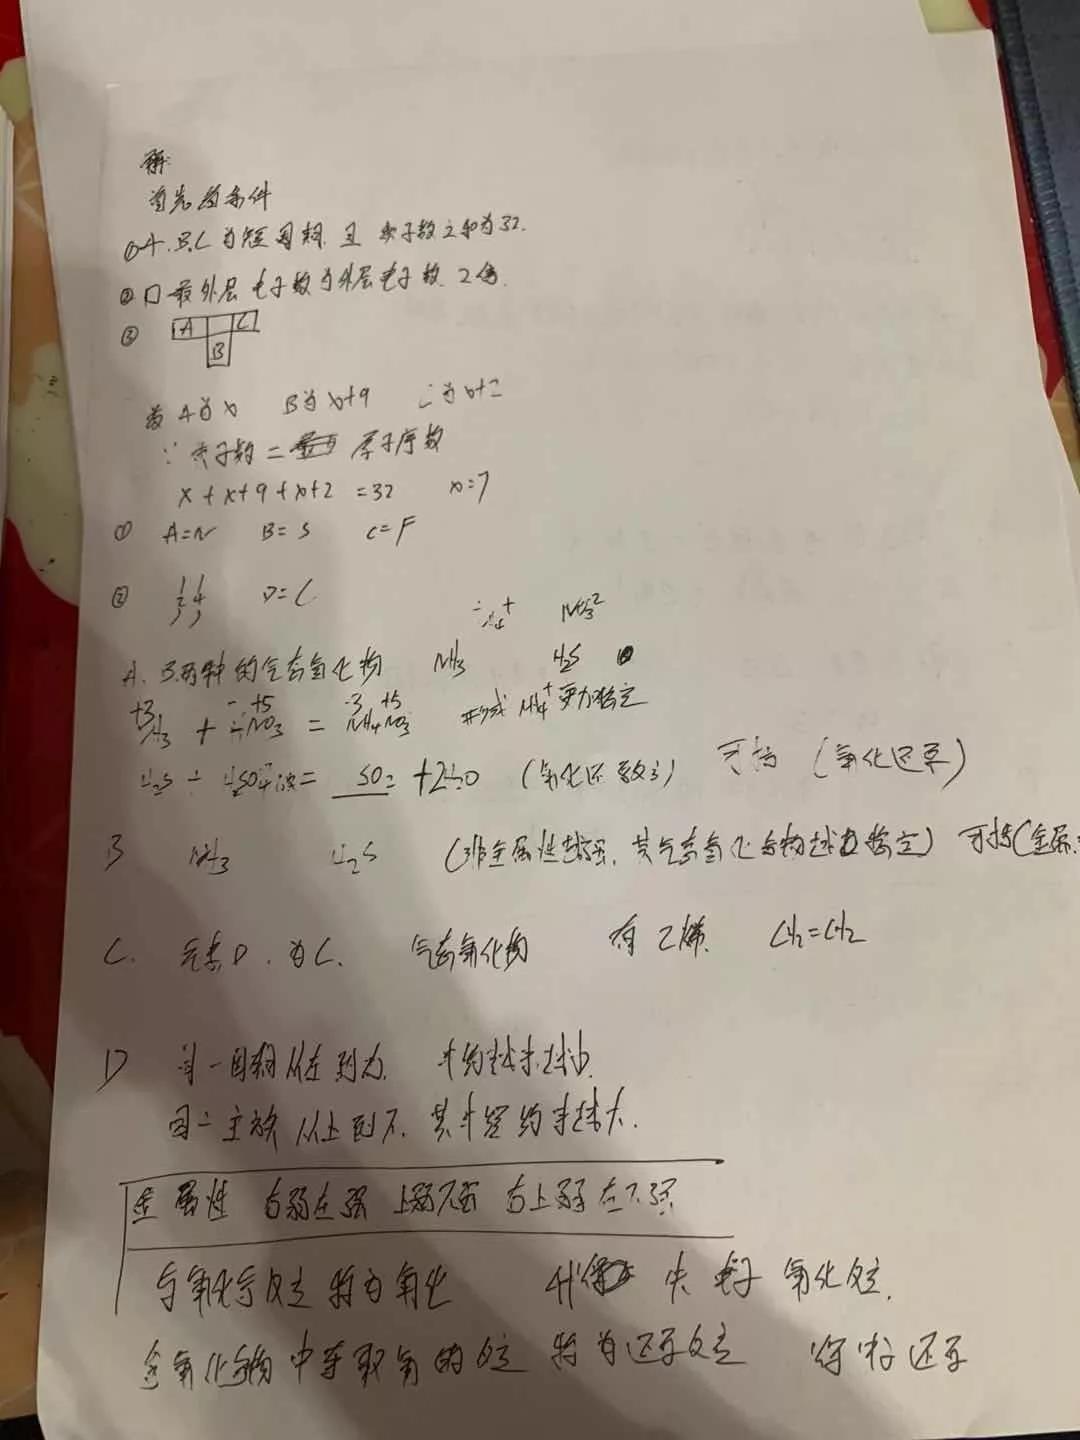 解:
首先为条件
①A.B.C为短周期 且 质子数之和为32.
②D最外层电子数为外层电子数 2倍.
③ A C
B
A为x B为x+9 C为x+2
∵质子数= 原子序数
x+x+9+x+2=32 x=7
① A=N B=S C=F
② D=C
NH4+
A. B两种的气态氢化物 NH3 H2S
+3 +5 -3 +5
NH3 + HNO3 = NH4NO3 形成NH4+更加稳定
H2S + H2SO4浓= SO2 +2H2O (氧化还 ) (氧化还原)
B NH3 H2S (非金属性越强,其气态氢化合物越 稳定) (金属
C. 元素D.为C. 气态氧化物 有乙烯. CH2=CH2
D 同一周期从左到右. 半约越来越小.
同一主族从上到下.其半径约来越大.
金属性 右弱左强 上弱下强 右上弱左下强
与氧化反应 称为氧化 失电子 氧化反应.
含氧化物中夺取氧的反应 称为还原反应 得 还原